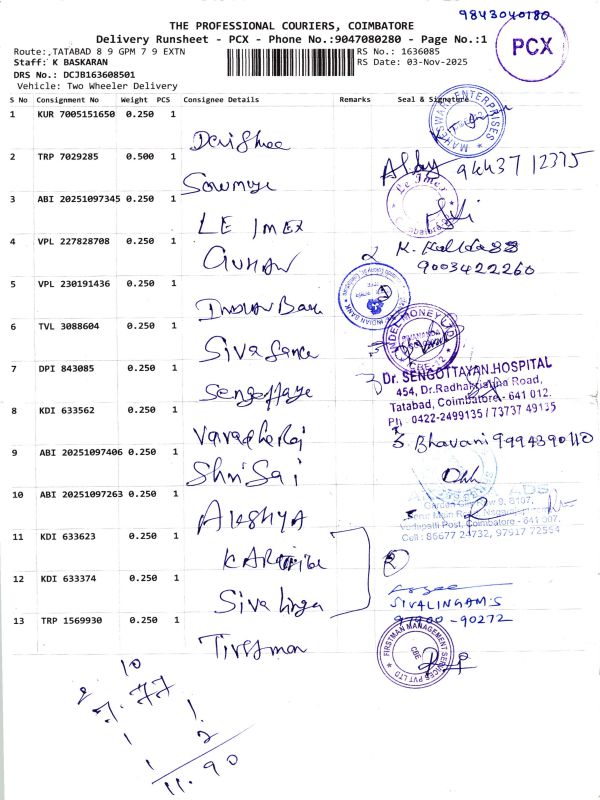 9843040180
THE PROFESSIONAL COURIERS, COIMBATORE
Delivery Runsheet - PCX - Phone No.:9047080280 - Page No.:1
PCX
Route:,TATABAD 8 9 GPM 7 9 EXTN
RS No.: 1636085
Staff: K BASKARAN
RS Date: 03-Nov-2025
DRS No.: DCJB163608501
Vehicle: Two Wheeler Delivery
S No Consignment No Weight PCS Consignee Details Remarks Seal & Signature
1 KUR 7005151650 0.250 1
MAHESWARI ENTERPRISES
2 TRP 7029285 0.500 1 Sowmya
94437 12375
3 ABI 20251097345 0.250 1 LE IMEX
Le Imex
4 VPL 227828708 0.250 1 GUHAN
K. Kalidass
9003422260
5 VPL 230191436 0.250 1 INDIAN Bank
INDIAN BANK
6 TVL 3088604 0.250 1
INDEL MONEY LTD
7 DPI 843085 0.250 1
Dr. SENGOTTAYAN HOSPITAL
454, Dr.Radhakrishna Road,
Tatabad, Coimbatore - 641 012.
Ph : 0422-2499135 / 73737 49135
8 KDI 633562 0.250 1 Varadharaj
Bhavani 9994390110
9 ABI 20251097406 0.250 1 Shri Sai
10 ABI 20251097263 0.250 1 AKSHYA
ADS
Vedapatti Post, Coimbatore - 641 007.
Cell : 86677 24732, 97917 72564
11 KDI 633623 0.250 1
2
12 KDI 633374 0.250 1 Siva linga
SIVALINGAM.S
97900 - 90272
13 TRP 1569930 0.250 1
FIRSTMAN MANAGEMENT SERVICES PVT LTD
CBE
10
1 1
1 2
11.90